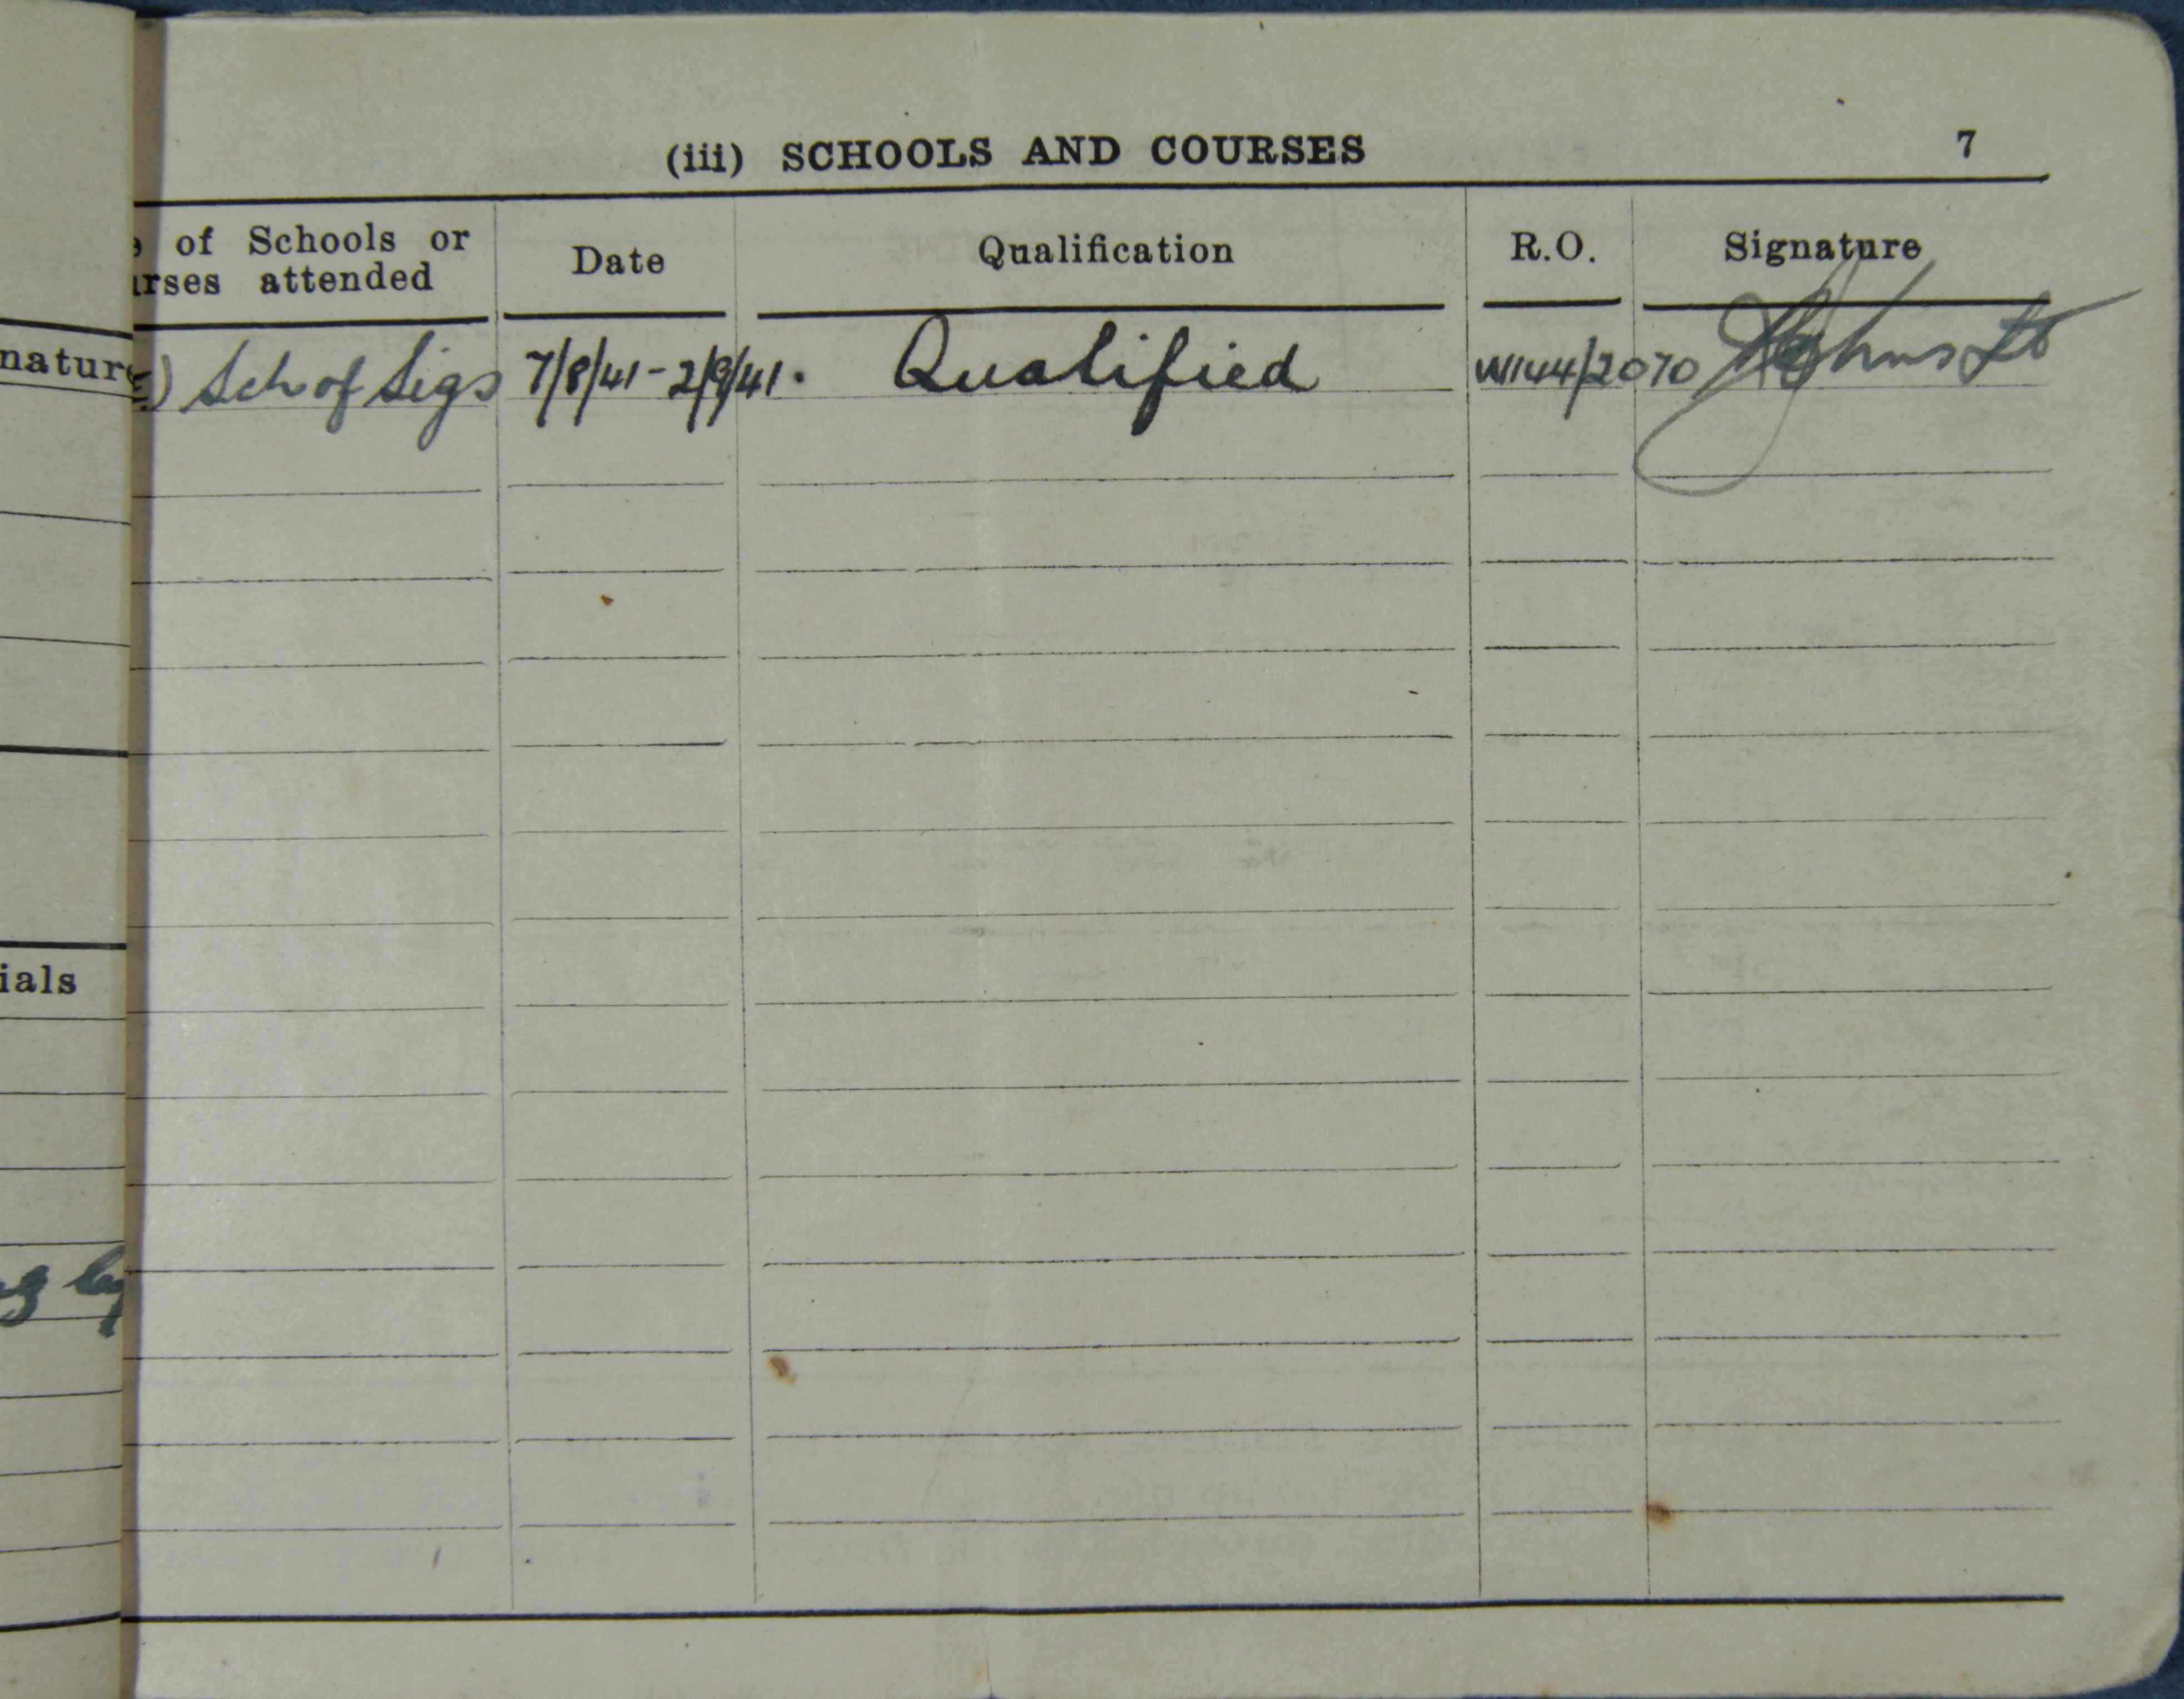 (iii) SCHOOLS AND COURSES 7
of Schools or
attended
Date
Qualification
R.O.
Signature
Sch of Sigs 7/8/41 - 2/9/41. Qualified W144/2070